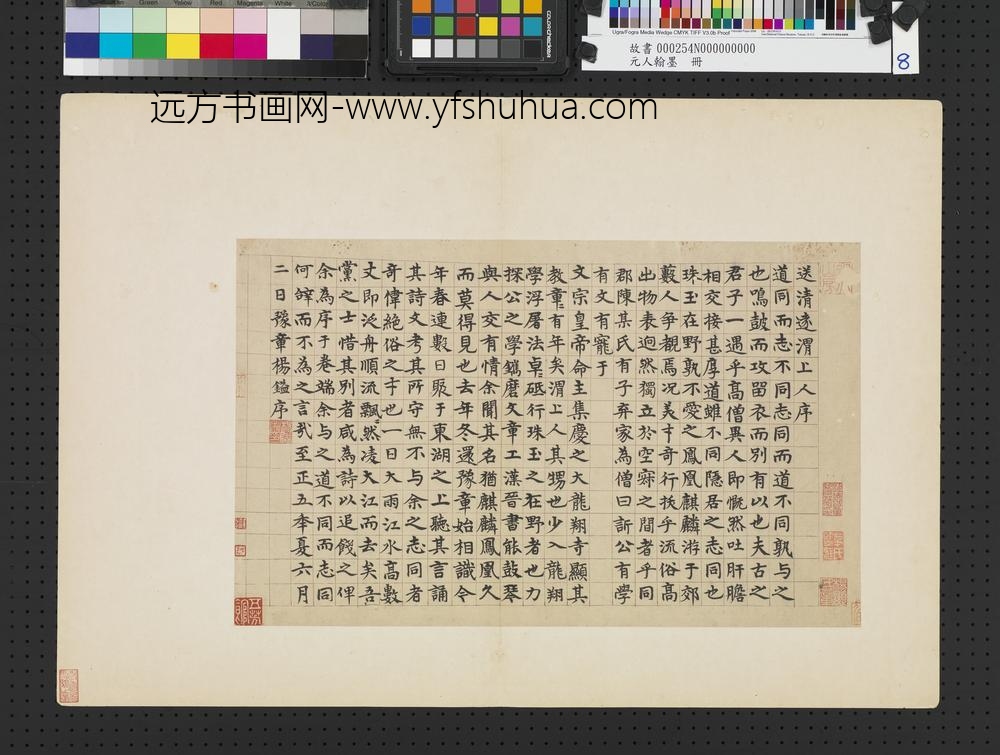 Ugra/Fogra Media Wedge CMYK TIFF V3.0b Proof
colorchecker
故書 000254N000000000
元人翰墨 冊
8
远方书画网-www.yfshuhua.com
送清遠渭上人序
道同而志不同志同而道不同孰與之
也鳴鼓而攻留衣而別有以也夫古之
君子一遇乎高僧異人即慨然吐肝膽
相交接甚厚道雖不同隱居之志同也
珠玉在野孰不愛之鳳凰麒麟游于郊
藪人爭覩焉况美才奇行拔乎流俗高
出物表迥然獨立於空寂之間者乎同
郡陳某氏有子弃家為僧曰訢公有學
有文有寵于
文宗皇帝命主集慶之大龍翔寺顯其
教童有年矣渭上人其甥也少入龍翔
學浮屠法卓砥行珠玉之在野者也力
探公之學鐫磨文章工漢晉書能鼓琴
與人交有情余聞其名猶麒麟鳳凰久
而莫得見也去年冬還豫章始相識今
年春連數日眂于東湖之上聽其言誦
其詩文考其所守無不与余之志同者
奇偉絶俗之才也一日大雨江水高數
丈即泛舟順流飄然凌大江而去矣吾
黨之士惜其別者咸為詩以追餞之俾
余為序于卷端余与之道不同而志同
何辤而不為之言哉至正五年夏六月
二日豫章楊鎰序